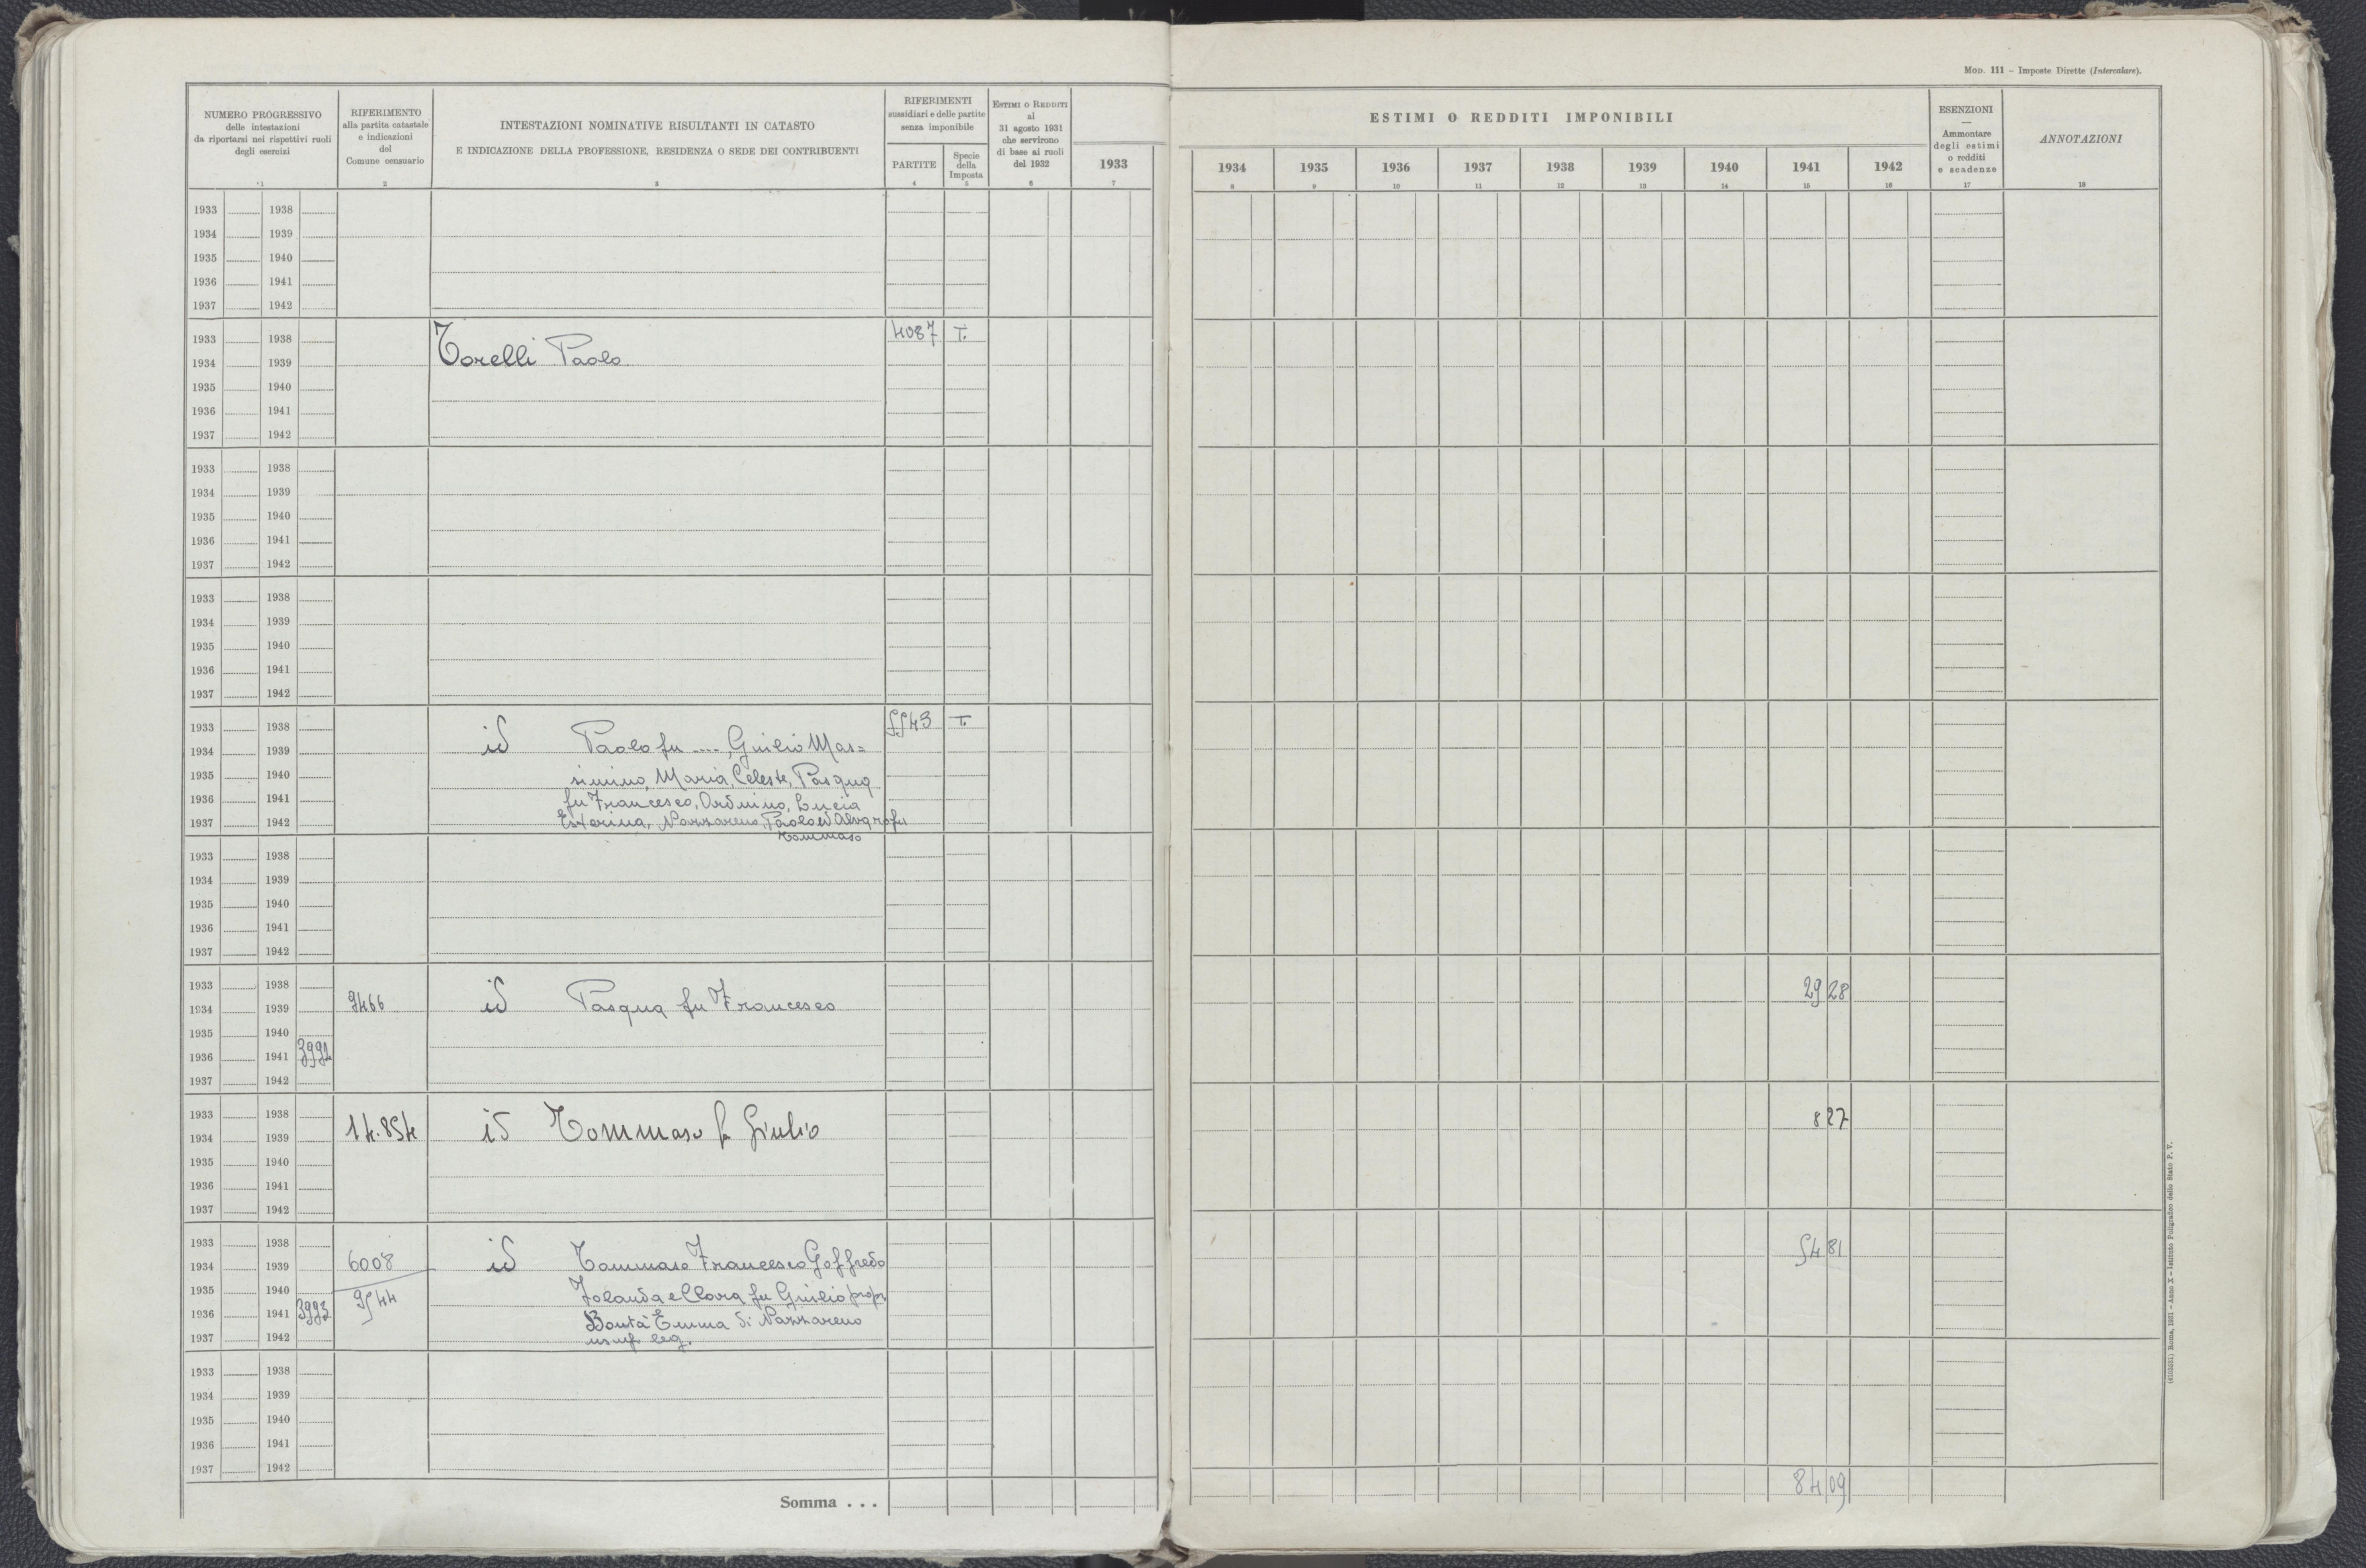 MOD. 111 – Imposte Dirette (Intercalare).
NUMERO PROGRESSIVO
delle intestazioni
da riportarsi nei rispettivi ruoli
degli esercizi
1
RIFERIMENTO
alla partita catastale
e indicazioni
del
Comune censuario
2
INTESTAZIONI NOMINATIVE RISULTANTI IN CATASTO
E INDICAZIONE DELLA PROFESSIONE, RESIDENZA O SEDE DEI CONTRIBUENTI
3
RIFERIMENTI
sussidiari e delle partite
senza imponibile
PARTITE
4
Specie
della
Imposta
5
ESTIMI O REDDITI
al
31 agosto 1931
che servirono
di base ai ruoli
del 1932
6
1933
7
ESTIMI O REDDITI IMPONIBILI
1934 1935 1936 1937 1938 1939 1940 1941 1942
8 9 10 11 12 13 14 15 16
ESENZIONI
—
Ammontare
degli estimi
o redditi
e scadenze
17
ANNOTAZIONI
18
1933 1938
1934 1939
1935 1940
1936 1941
1937 1942
1933 1938 4087 T.
1934 1939 Torelli Paolo
1935 1940
1936 1941
1937 1942
1933 1938
1934 1939
1935 1940
1936 1941
1937 1942
1933 1938
1934 1939
1935 1940
1936 1941
1937 1942
1933 1938 5543 T.
1934 1939 id Paolo fu ...., Giulio Mas=
1935 1940 simino, Maria, Celeste, Pasqua
1936 1941 fu Francesco, Arduino, Lucia
1937 1942 Esterina, Nazzareno, Paolo ed Alvaro fu
Tommaso
1933 1938
1934 1939
1935 1940
1936 1941
1937 1942
1933 1938 29 28
1934 1939 9466 id Pasqua fu Francesco
1935 1940
1936 1941 3992
1937 1942
1933 1938 8 27
1934 1939 14.854 id Tommaso fu Giulio
1935 1940
1936 1941
1937 1942
1933 1938 54 81
1934 1939 6008 id Tommaso Francesco Goffredo
1935 1940 9544 Jolanda e Clara fu Giulio propr
1936 1941 3993 Bontà Emma di Nazzareno
1937 1942 usuf. leg.
1933 1938
1934 1939
1935 1940
1936 1941
1937 1942
Somma . . . 84 09
(4103051) Roma, 1931 - Anno X - Istituto Poligrafico dello Stato P. V.